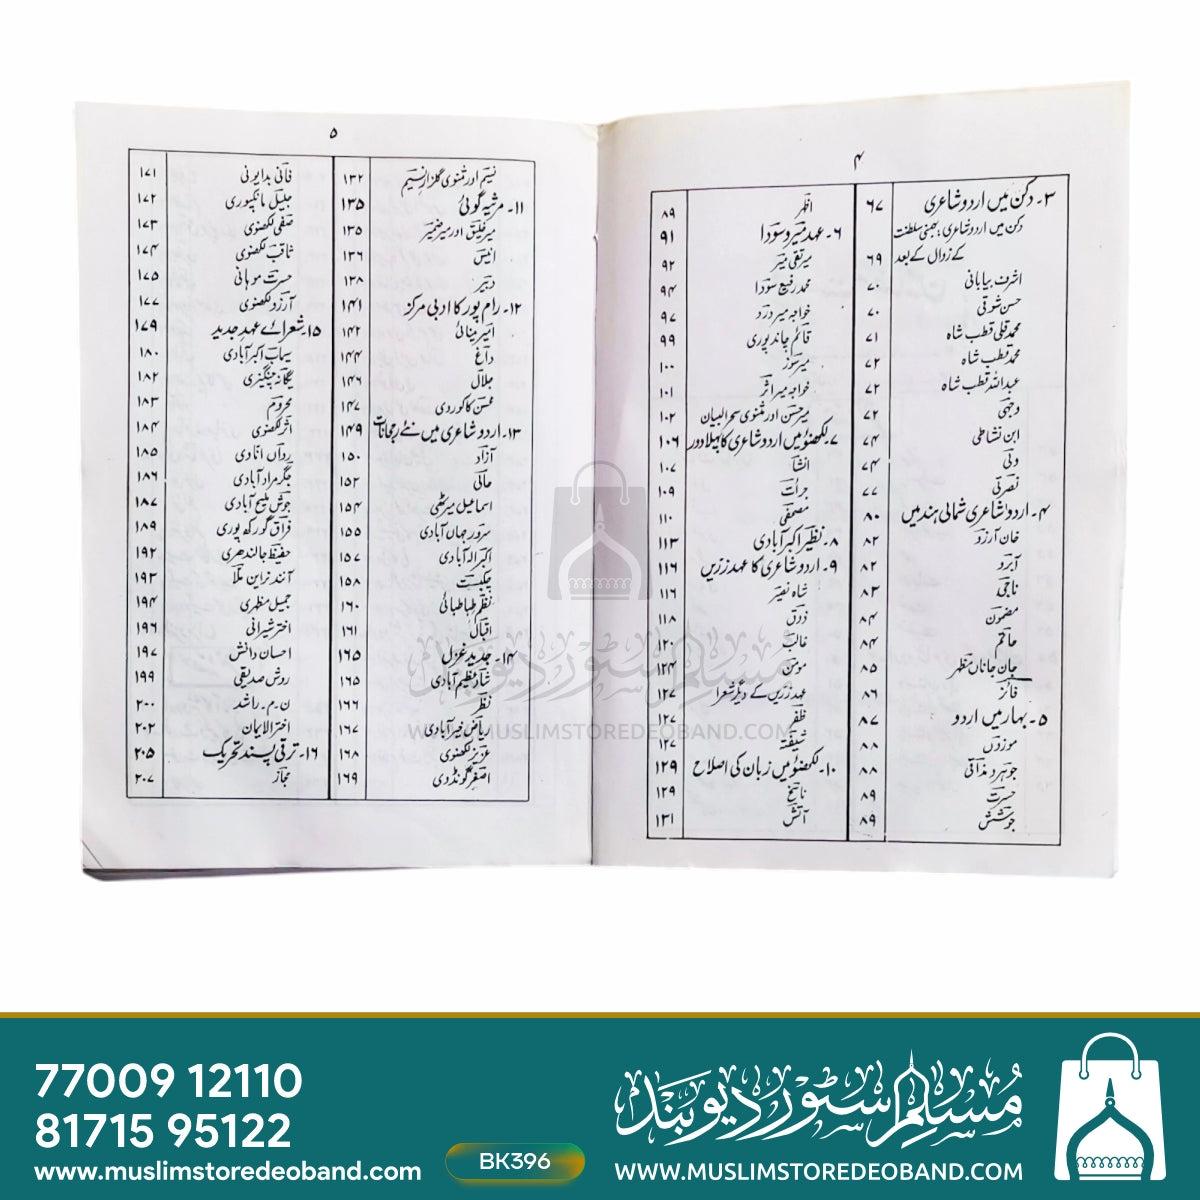 ۴
۳۔ دکن میں اردو شاعری ۶۷
دکن میں اردو شاعری، بہمنی سلطنت
کے زوال کے بعد ۶۹
اشرف بیابانی ۷۰
حسن شوقی ۷۰
محمد قلی قطب شاہ ۷۱
محمد قطب شاہ ۷۲
عبداللہ قطب شاہ ۷۲
وجہی ۷۲
ابن نشاطی ۷۴
ولی ۷۴
نصرتی ۷۷
۴۔ اردو شاعری شمالی ہند میں ۸۰
خان آرزو ۸۲
آبرو ۸۲
ناجی ۸۳
مضمون ۸۴
حاتم ۸۴
جان جاناں مظہر ۸۵
فائز ۸۶
۵۔ بہار میں اردو ۸۷
موزوں ۸۸
جوہر و مذاقی ۸۸
حسرت ۸۹
جوشش ۸۹
اظہر ۸۹
۶۔ عہد میر و سودا ۹۱
میر تقی میر ۹۲
محمد رفیع سودا ۹۴
خواجہ میر درد ۹۷
قائم چاند پوری ۹۹
میر سوز ۱۰۰
خواجہ میر اثر ۱۰۱
میر حسن اور مثنوی سحر البیان ۱۰۲
۷۔ لکھنؤ میں اردو شاعری کا پہلا دور ۱۰۶
انشا ۱۰۷
جرأت ۱۰۹
مصحفی ۱۱۰
۸۔ نظیر اکبر آبادی ۱۱۳
۹۔ اردو شاعری کا عہد زریں ۱۱۶
شاہ نصیر ۱۱۶
ذوق ۱۱۸
غالب ۱۲۰
مومن ۱۲۴
عہد زریں کے دیگر شعرا ۱۲۷
ظفر ۱۲۷
شیفتہ ۱۲۷
۱۰۔ لکھنؤ میں زبان کی اصلاح ۱۲۹
ناسخ ۱۲۹
آتش ۱۳۱
۵
نسیم اور مثنوی گلزار نسیم ۱۳۲
۱۱۔ مرثیہ گوئی ۱۳۵
میر خلیق اور میر ضمیر ۱۳۵
انیس ۱۳۶
دبیر ۱۳۸
۱۲۔ رام پور کا ادبی مرکز ۱۴۱
امیر مینائی ۱۴۲
داغ ۱۴۴
جلال ۱۴۶
محسن کاکوروی ۱۴۷
۱۳۔ اردو شاعری میں نئے رجحانات ۱۴۹
آزاد ۱۵۰
حالی ۱۵۲
اسماعیل میرٹھی ۱۵۴
سرور جہاں آبادی ۱۵۵
اکبر الہ آبادی ۱۵۷
چکبست ۱۵۸
نظم طباطبائی ۱۶۰
اقبال ۱۶۱
۱۴۔ جدید غزل ۱۶۵
شاد عظیم آبادی ۱۶۵
نظر ۱۶۶
ریاض خیر آبادی ۱۶۷
عزیز لکھنوی ۱۶۸
اصغر گونڈوی ۱۶۹
فانی بدایونی ۱۷۱
جلیل مانکپوری ۱۷۲
صفی لکھنوی ۱۷۳
ثاقب لکھنوی ۱۷۴
حسرت موہانی ۱۷۵
آرزو لکھنوی ۱۷۷
۱۵۔ شعرائے عہد جدید ۱۷۹
سیماب اکبر آبادی ۱۸۰
یگانہ چنگیزی ۱۸۲
محروم ۱۸۳
اثر لکھنوی ۱۸۴
رواں اناوی ۱۸۵
جگر مراد آبادی ۱۸۶
جوش ملیح آبادی ۱۸۷
فراق گورکھ پوری ۱۸۹
حفیظ جالندھری ۱۹۲
آنند نراین ملا ۱۹۳
جمیل مظہری ۱۹۴
اختر شیرانی ۱۹۶
احسان دانش ۱۹۷
روش صدیقی ۱۹۹
ن۔م۔ راشد ۲۰۰
اختر الایمان ۲۰۲
۱۶۔ ترقی پسند تحریک ۲۰۵
مجاز ۲۰۷
مسلم سٹور دیوبند
WWW.MUSLIMSTOREDEOBAND.COM
77009 12110
81715 95122
www.muslimstoredeoband.com
BK396
مسلم سٹور دیوبند
WWW.MUSLIMSTOREDEOBAND.COM